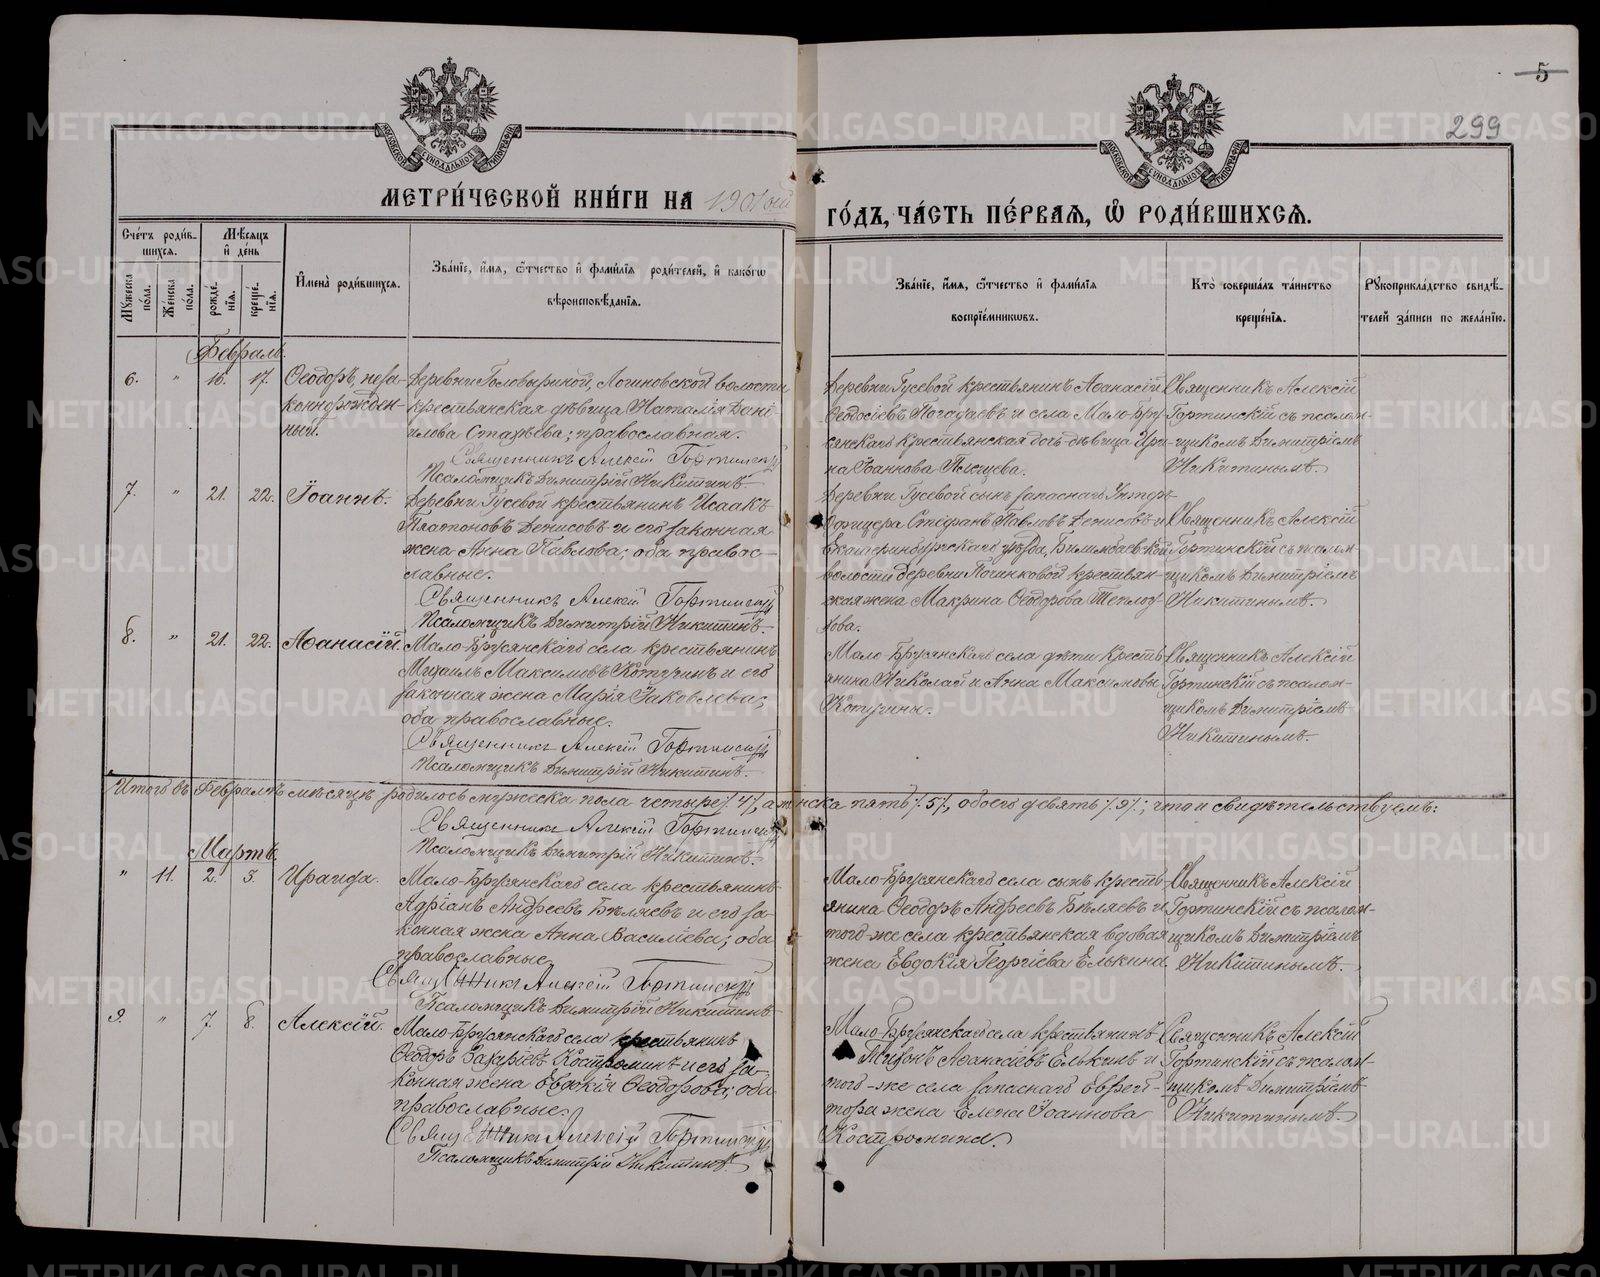 5
299
МОСКОВСКОЙ СѴНОДАЛЬНОЙ ТИПОГРАФІИ
МОСКОВСКОЙ СѴНОДАЛЬНОЙ ТИПОГРАФІИ
МЕТРИ́ЧЕСКОЙ КНИ́ГИ НА 1901ый
ГО́ДЪ, ЧА́СТЬ ПЕ́РВАЯ, Ѡ РОДИ́ВШИХСЯ.
Сче́тъ роди́в-
шихся.
Мѣ́сяцъ
и де́нь
Мужеска по́ла.
Же́нска по́ла.
рожде́нїя.
креще́нїя.
И́мена̀ роди́вшихся.
Зва́нїе, и́мя, ѻ҆́тчество и фами́лїя роди́телей, и како́гѡ
вѣроисповѣ́данїя.
Зва́нїе, и́мя, ѻ҆́тчество и фами́лїя
воспрїе́мникѡвъ.
Кто̀ соверша́лъ та́инство
креще́нїя.
Рꙋкоприкла́дство свидѣ́-
телей за́писи по жела́нїю.
Февраль.
6. " 16. 17. Ѳеодоръ, неза-
коннорожден-
ный.
Деревни Головыриной, Логиновской волости
крестьянская дѣвица Наталія Дані-
илова Стахѣева; православная.
Священникъ Алексій Гортинскій
Псаломщикъ Димитрій Никитинъ.
Деревни Гусевой крестьянинъ Аѳанасій
Ѳеодосіевъ Погадаевъ и села Мало-Бру-
сянскаго крестьянская дочь-дѣвица Ири-
на Іоаннова Плещева.
Священникъ Алексій
Гортинскій съ псалом-
щикомъ Димитріемъ
Никитинымъ.
7. " 21. 22. Іоаннъ.
Деревни Гусевой крестьянинъ Исаакъ
Платоновъ Денисовъ и его законная
жена Анна Павлова; оба правос-
лавные.
Священникъ Алексій Гортинскій
Псаломщикъ Димитрій Никитинъ.
Деревни Гусевой сынъ запаснаго Унтеръ
Офицера Стефанъ Павловъ Денисовъ и
Екатеринбургскаго уѣзда, Билимбаевской
волости деревни Починковой крестьян-
ская жена Макрина Ѳеодорова Теплоу-
хова.
Священникъ Алексій
Гортинскій съ псалом-
щикомъ Димитріемъ
Никитинымъ.
8. " 21. 22. Аѳанасій.
Мало-Брусянскаго села крестьянинъ
Михаилъ Максимовъ Котугинъ и его
законная жена Марія Іаковлева;
оба православные.
Священникъ Алексій Гортинскій
Псаломщикъ Димитрій Никитинъ.
Мало-Брусянскаго села дѣти кресть-
янина Николай и Анна Максимовы
Котугины.
Священникъ Алексій
Гортинскій съ псалом-
щикомъ Димитріемъ
Никитинымъ.
Итого въ Февралѣ мѣсяцѣ родилось мужеска пола четыре /4/, а женска пять /5/, обоего девять /9/; что и свидѣтельствуемъ:
Священникъ Алексій Гортинскій
Псаломщикъ Димитрій Никитинъ.
Мартъ.
" 11. 2. 3. Ираида.
Мало-Брусянскаго села крестьянинъ
Адріанъ Андреевъ Бѣляевъ и его за-
конная жена Анна Василіева; оба
православные.
Священникъ Алексій Гортинскій
Псаломщикъ Димитрій Никитинъ.
Мало-Брусянскаго села сынъ кресть-
янина Ѳеодоръ Андреевъ Бѣляевъ и
того-же села крестьянская вдовая
жена Евдокія Георгіева Елькина.
Священникъ Алексій
Гортинскій съ псалом-
щикомъ Димитріемъ
Никитинымъ.
9. " 7. 8. Алексій.
Мало-Брусянскаго села крестьянинъ
Ѳеодоръ Захаріевъ Костроминъ и его за-
конная жена Евдокія Ѳеодорова; оба
православные.
Священникъ Алексій Гортинскій
Псаломщикъ Димитрій Никитинъ.
Мало-Брусянскаго села крестьянинъ
Тихонъ Аѳанасіевъ Елькинъ и
того-же села запаснаго Еврей-
тора жена Елена Іоаннова
Костромина.
Священникъ Алексій
Гортинскій съ псалом-
щикомъ Димитріемъ
Никитинымъ.
METRIKI.GASO-URAL.RU